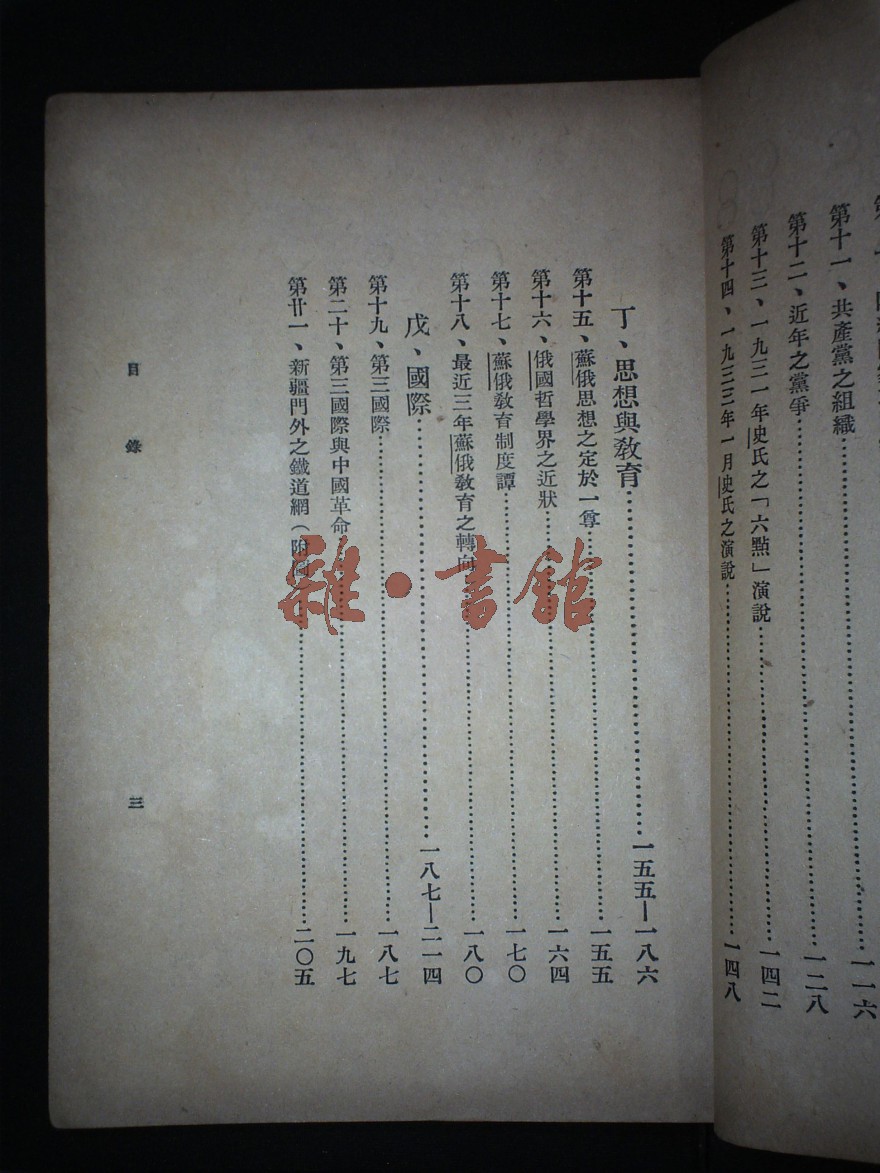 第十一、共產黨之組織……一一六
第十二、近年之黨爭……一二八
第十三、一九三一年史氏之「六點」演說……一四二
第十四、一九三三年一月史氏之演說……一四八
丁、思想與教育……一五五—一八六
第十五、蘇俄思想之定於一尊……一五五
第十六、俄國哲學界之近狀……一六四
第十七、蘇俄教育制度譚……一七〇
第十八、最近三年蘇俄教育之轉向……一八〇
戊、國際……一八七—二一四
第十九、第三國際……一八七
第二十、第三國際與中國革命……一九七
第廿一、新疆門外之鐵道網（附圖……二〇五
目錄
三
雜·書館